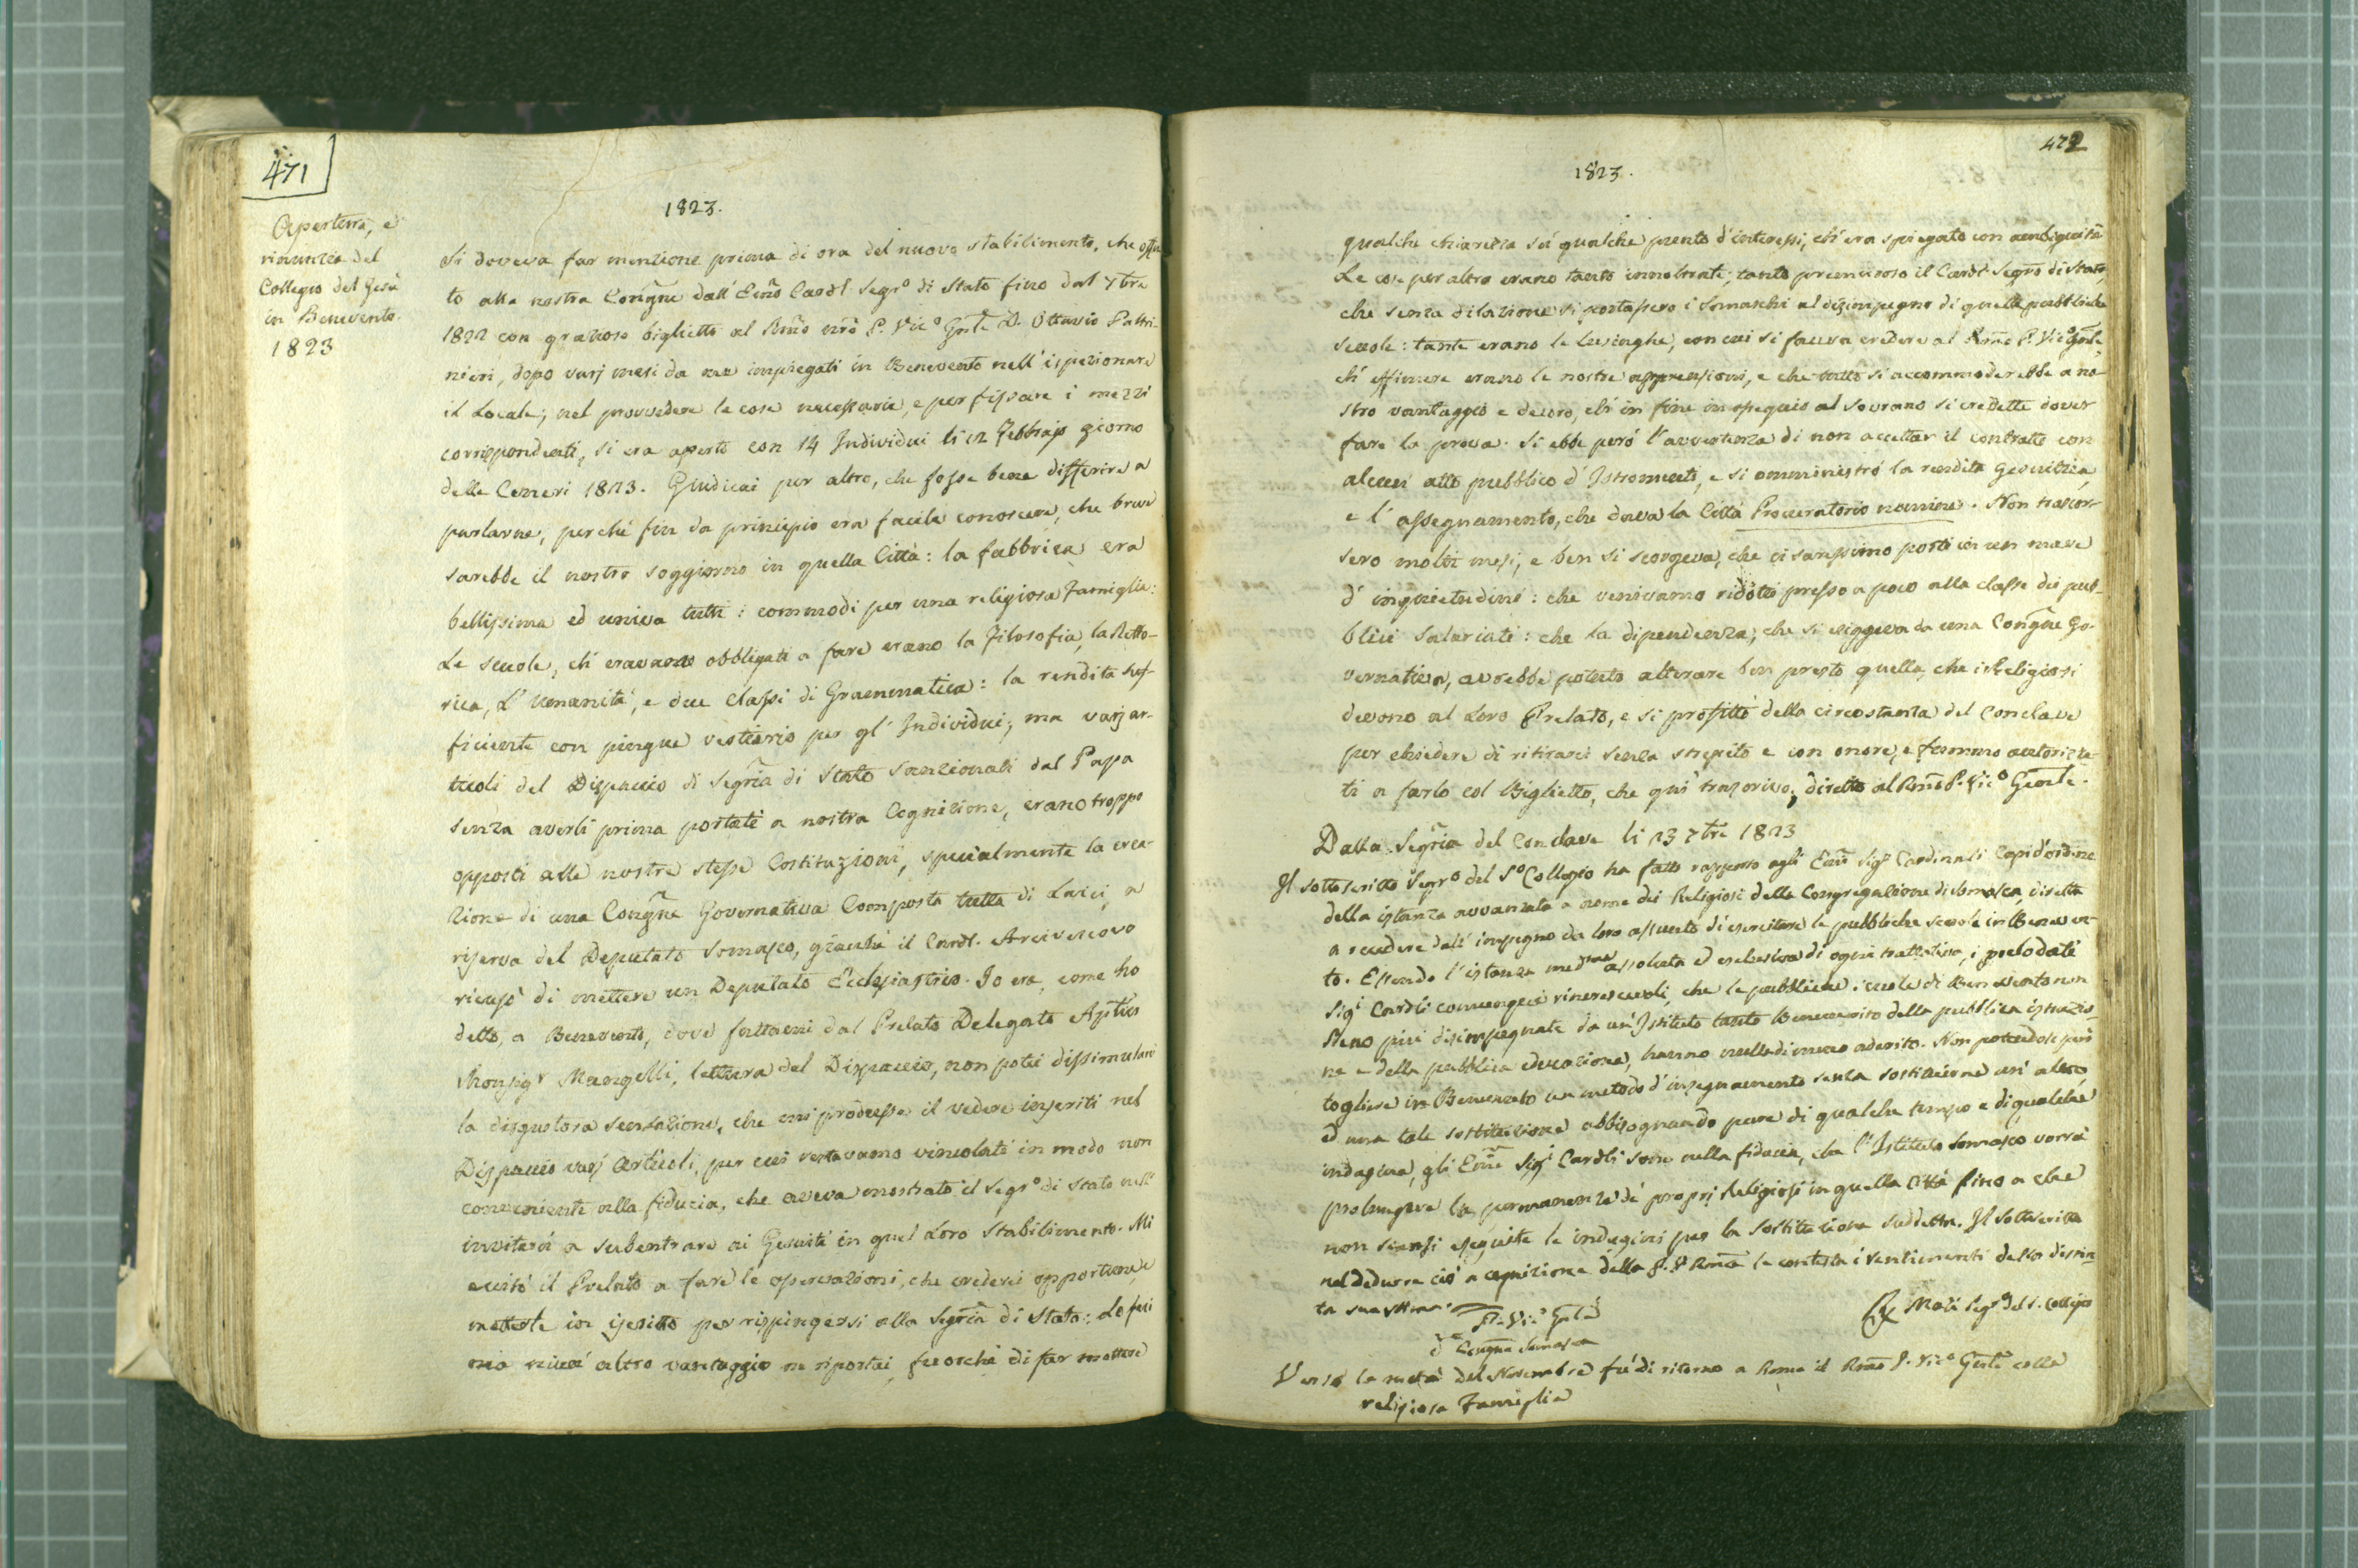 471
1823.
Apertura, e
rinunzia del
Collegio del Gesù
in Benevento.
1823
Si doveva far menzione prima di ora del nuovo stabilimento, che offer-
to alla nostra Congne dall' Emo Cardl Segro di Stato fino dal 7bre
1822 con grazioso biglietto al Rmo nro P. Vico Gnle D. Ottavio Paltri-
nieri, dopo varj mesi da me impiegati in Benevento nell' ispezionare
il Locale, nel provvedere le cose necessarie, e per fissare i mezzi
corrispondenti, si era aperto con 14 Individui li 12 Febbrajo giorno
delle Ceneri 1823. Giudicai per altro, che fosse bene differire a
parlarne, perchè fin da principio era facile conoscere, che breve
sarebbe il nostro soggiorno in quella Città: la fabbrica era
bellissima ed univa tutti i commodi per una religiosa Famiglia:
Le scuole, ch' eravamo obbligati a fare erano la Filosofia, la Retto-
rica, L' Umanità, e due Classi di Grammatica: la rendita suf-
ficiente con pingue vestiario per gl' Individui; ma varj ar-
ticoli del Dispaccio di Segria di Stato sanzionati dal Papa
senza averli prima portati a nostra Cognizione, erano troppo
opposti alle nostre stesse Costituzioni, specialmente la crea-
zione di una Congne Governativa Composta tutta di Laici, a
riserva del Deputato Somasco, giacchè il Cardl. Arcivescovo
ricusò di mettere un Deputato Ecclesiastico. Io era, come ho
detto, a Benevento, dove fattami dal Prelato Delegato Aplico
Monsigr Mangelli, lettura del Dispaccio, non potei dissimulare
la disgustosa sensazione, che mi produsse il vedere inseriti nel
Dispaccio varj Articoli, per cui restavamo vincolati in modo non
conveniente alla fiducia, che aveva mostrato il Segro di Stato nell'
invitarci a subentrare ai Gesuiti in quel Loro Stabilimento. Mi
eccitò il Prelato a fare le operazioni, che crederei opportune, e
metterle in iscritto per rispingersi alla Segria di Stato: Lo feci
ma niun' altro vantaggio ne riportai, fuorchè di far mettere
472
1823.
qualche chiarezza su qualche punto d'interessi, ch' era spiegato con ambiguità
Le cose per altro erano tanto innoltrate; tanto premuroso il Cardl Segro di Stato,
che senza dilazione si portassero i Somaschi al disimpegno di quelle pubbliche
scuole: tante erano le lusinghe, con cui si faceva credere al Rmo P. Vico Gnle,
ch' effimere erano le nostre apprensioni, e che tutto si accommoderebbe a no-
stro vantaggio e decoro, ch' in fine in ossequio al Sovrano si credette dover
fare la prova. Si ebbe però l'avvertenza di non accettar il contratto con
alcun atto pubblico d' Istromento, e si amministrò la rendita Gesuitica,
e l' assegnamento, che dava la Città Procuratorio nomine. Non trascor-
sero molti mesi, e ben si scorgeva, che ci saressimo posti in un mare
d' inquietudini: che venivamo ridotti presso a poco alla classe dei pub-
blici Salariati: che la dipendenza, che si esiggeva da una Congne Go-
vernativa, avrebbe potuto alterare ben presto quella, che i Religiosi
devono al Loro Prelato, e si profittò della circostanza del Conclave
per chiedere di ritirarci senza strepito e con onore, e fummo autorizza-
ti a farlo col Biglietto, che qui trascrivo, diretto al Rmo P. Vico Gnle.
Dalla Segria del Conclave li 23 7bre 1823
Il sottoscritto Segro del So Collegio ha fatto rapporto agli Emi Sigi Cardinali Capi d'ordine
della istanza avvanzata a nome dei Religiosi della Congregazione di Somasca, diretta
a recedere dall' impegno da loro assunto di esercitare le pubbliche scuole in Beneven-
to. Essendo l'istanza medma assoluta ed esclusiva di ogni trattativa, i prelodati
Sigi Cardli comunque rincrescevoli, che le pubbliche scuole di Benevento non
sieno più disimpegnate da un' Istituto tanto Benemerito della pubblica istruzio-
ne e della pubblica educazione, hanno nulladimeno aderito. Non potendosi però
togliere in Benevento un metodo d'insegnamento senza sostituirne un' altro
ed una tale sostituzione abbisognando pure di qualche tempo e di qualche
indagine, gli Emi Sigi Cardli sono nella fiducia, che l' Istituto Somasco vorrà
prolungare la permanenza de' proprj Religiosi in quella Città fino a che
non siensi eseguite le indagini per la sostituzione suddetta. Il sottoscritto
nel dedurre ciò a cognizione della P. V. Rma le contesta i sentimenti della distin-
ta sua stima.
P. Vico Gnle
da Congne Somasca
R. Mazi Segro del S. Collegio
Verso la metà del Novembre fu di ritorno a Roma il Rmo P. Vico Gnle colla
religiosa Famiglia